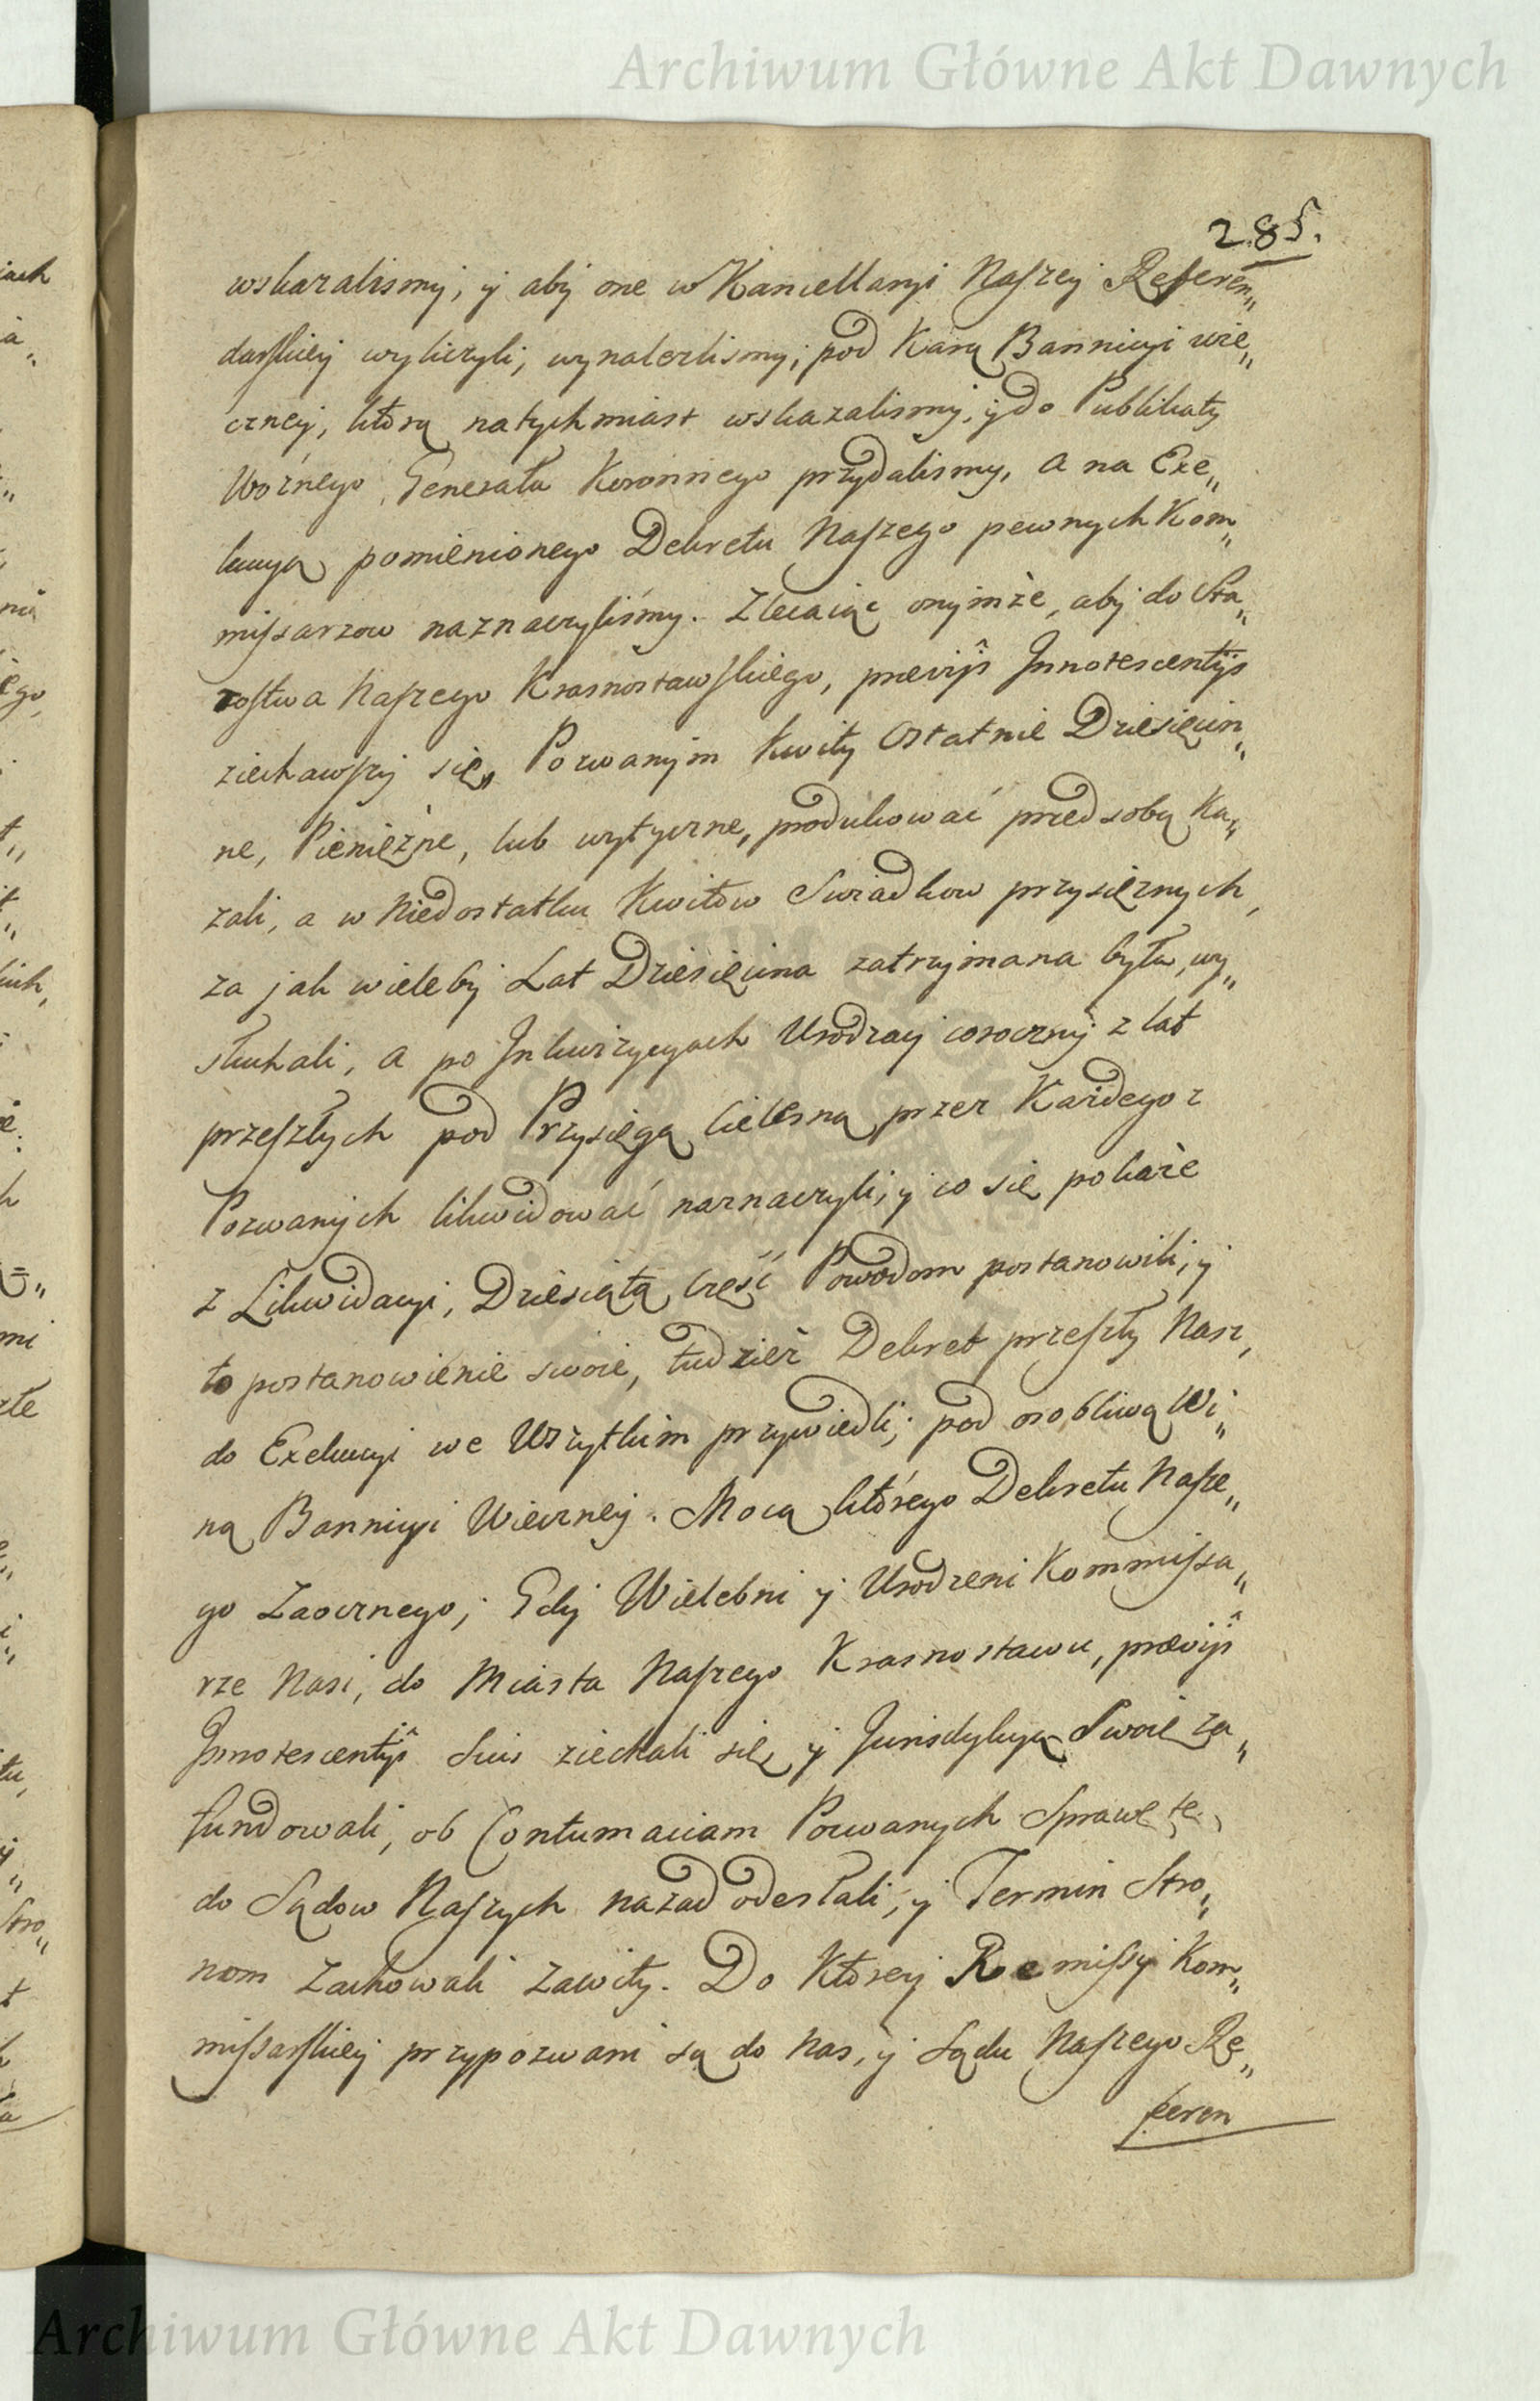 Archiwum Główne Akt Dawnych
285.
wskazalismy, y aby one w Kancellaryi Naszey Referen„
darskiey wyliczyli, wynalezlismy; pod Karą Bannicyi wie„
czney, którą natychmiast wskazalismy, y do Publikaty
Woźnego Generała Koronnego przydalismy, a na Exe„
kucyą pomienionego Dekretu Naszego pewnych Kom„
missarzow naznaczyliśmy. Zlecaiąc onymże, aby do Sta„
rostwa Naszego Krasnostawskiego, prævijs Innotescentijs
ziechawszy się, Pozwanym Kwity Ostatnie Dziesięcin„
ne, Pieniężne, lub wytyczne, produkować przed sobą Ka„
zali, a w Niedostatku Kwitów Swiadkow przysięznych,
za jak wieleby Lat Dziesięcina zatrzymana była, wy„
słuchali, a po Inkwizycyach Urodzay coroczny z lat
przeszłych pod Przysięgą Cielesną przez Każdego z
Pozwanych likwidować naznaczyli, y co się pokaże
z Likwidacyi, Dziesiątą Część Powodom postanowili, y
to postanowienie swoie, tudzież Dekret przeszły Nasz,
do Exekucyi we Wszytkim przywiedli; pod osobliwą Wi„
ną Bannicyi Wieczney. Mocą którego Dekretu Nasze„
go Zaocznego; Gdy Wielebni y Urodzeni Kommissa„
rze Nasi, do Miasta Naszego Krasnostawu, prævijs
Innotescentijs Suis ziechali się, y Jurisdykcyą Swoię za„
fundowali, ob Contumaciam Pozwanych Sprawę tę
do Sądow Naszych nazad odesłali, y Termin Stro„
nom Zachowali Zawity. Do Którey Remissy Kom„
missarskiey przypozwani są do Nas, y Sądu Naszego Re„
feren
Archiwum Główne Akt Dawnych